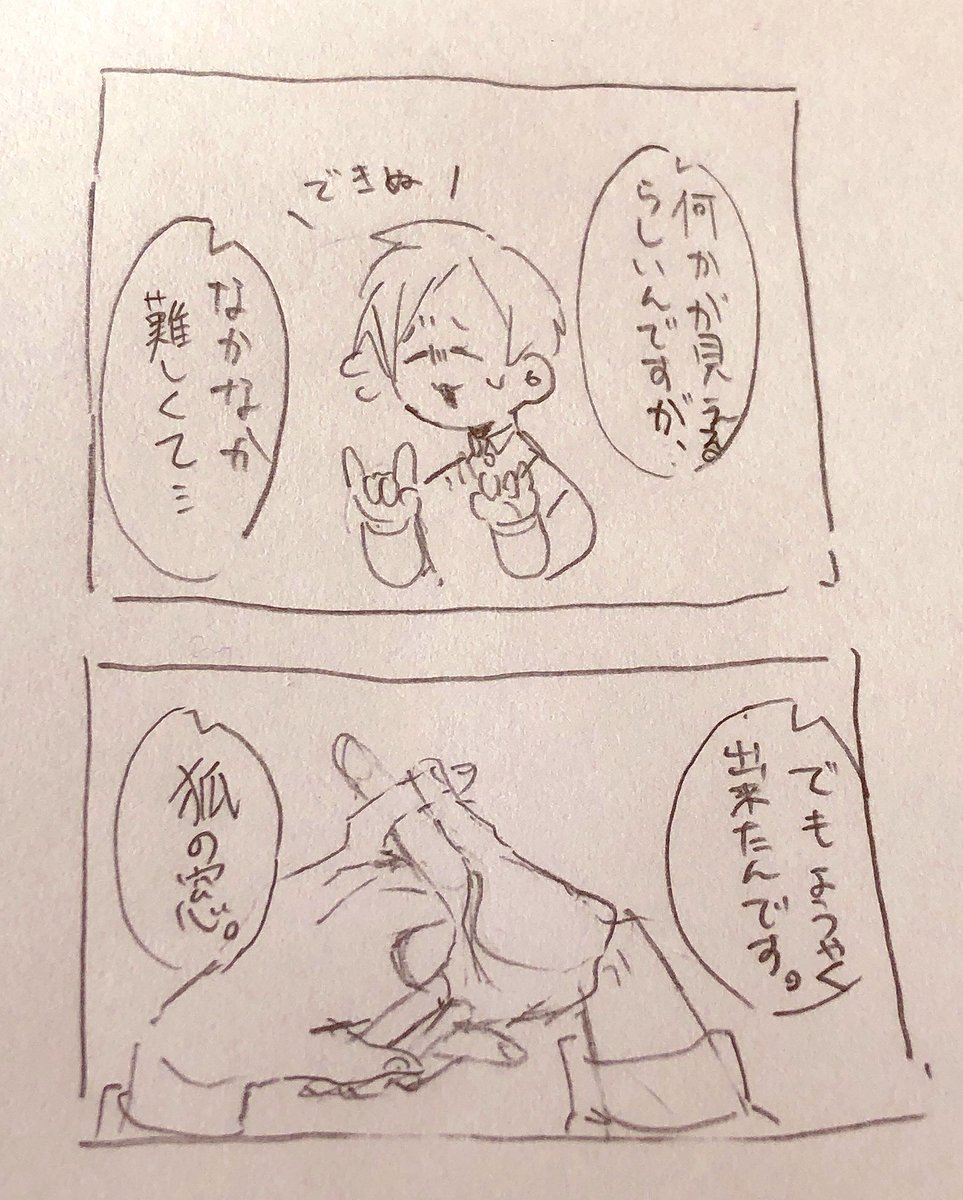 何かが見える
らしいんですが、
できぬ
なかなか
難しくて…
でもようやく
出来たんです。
狐の窓。